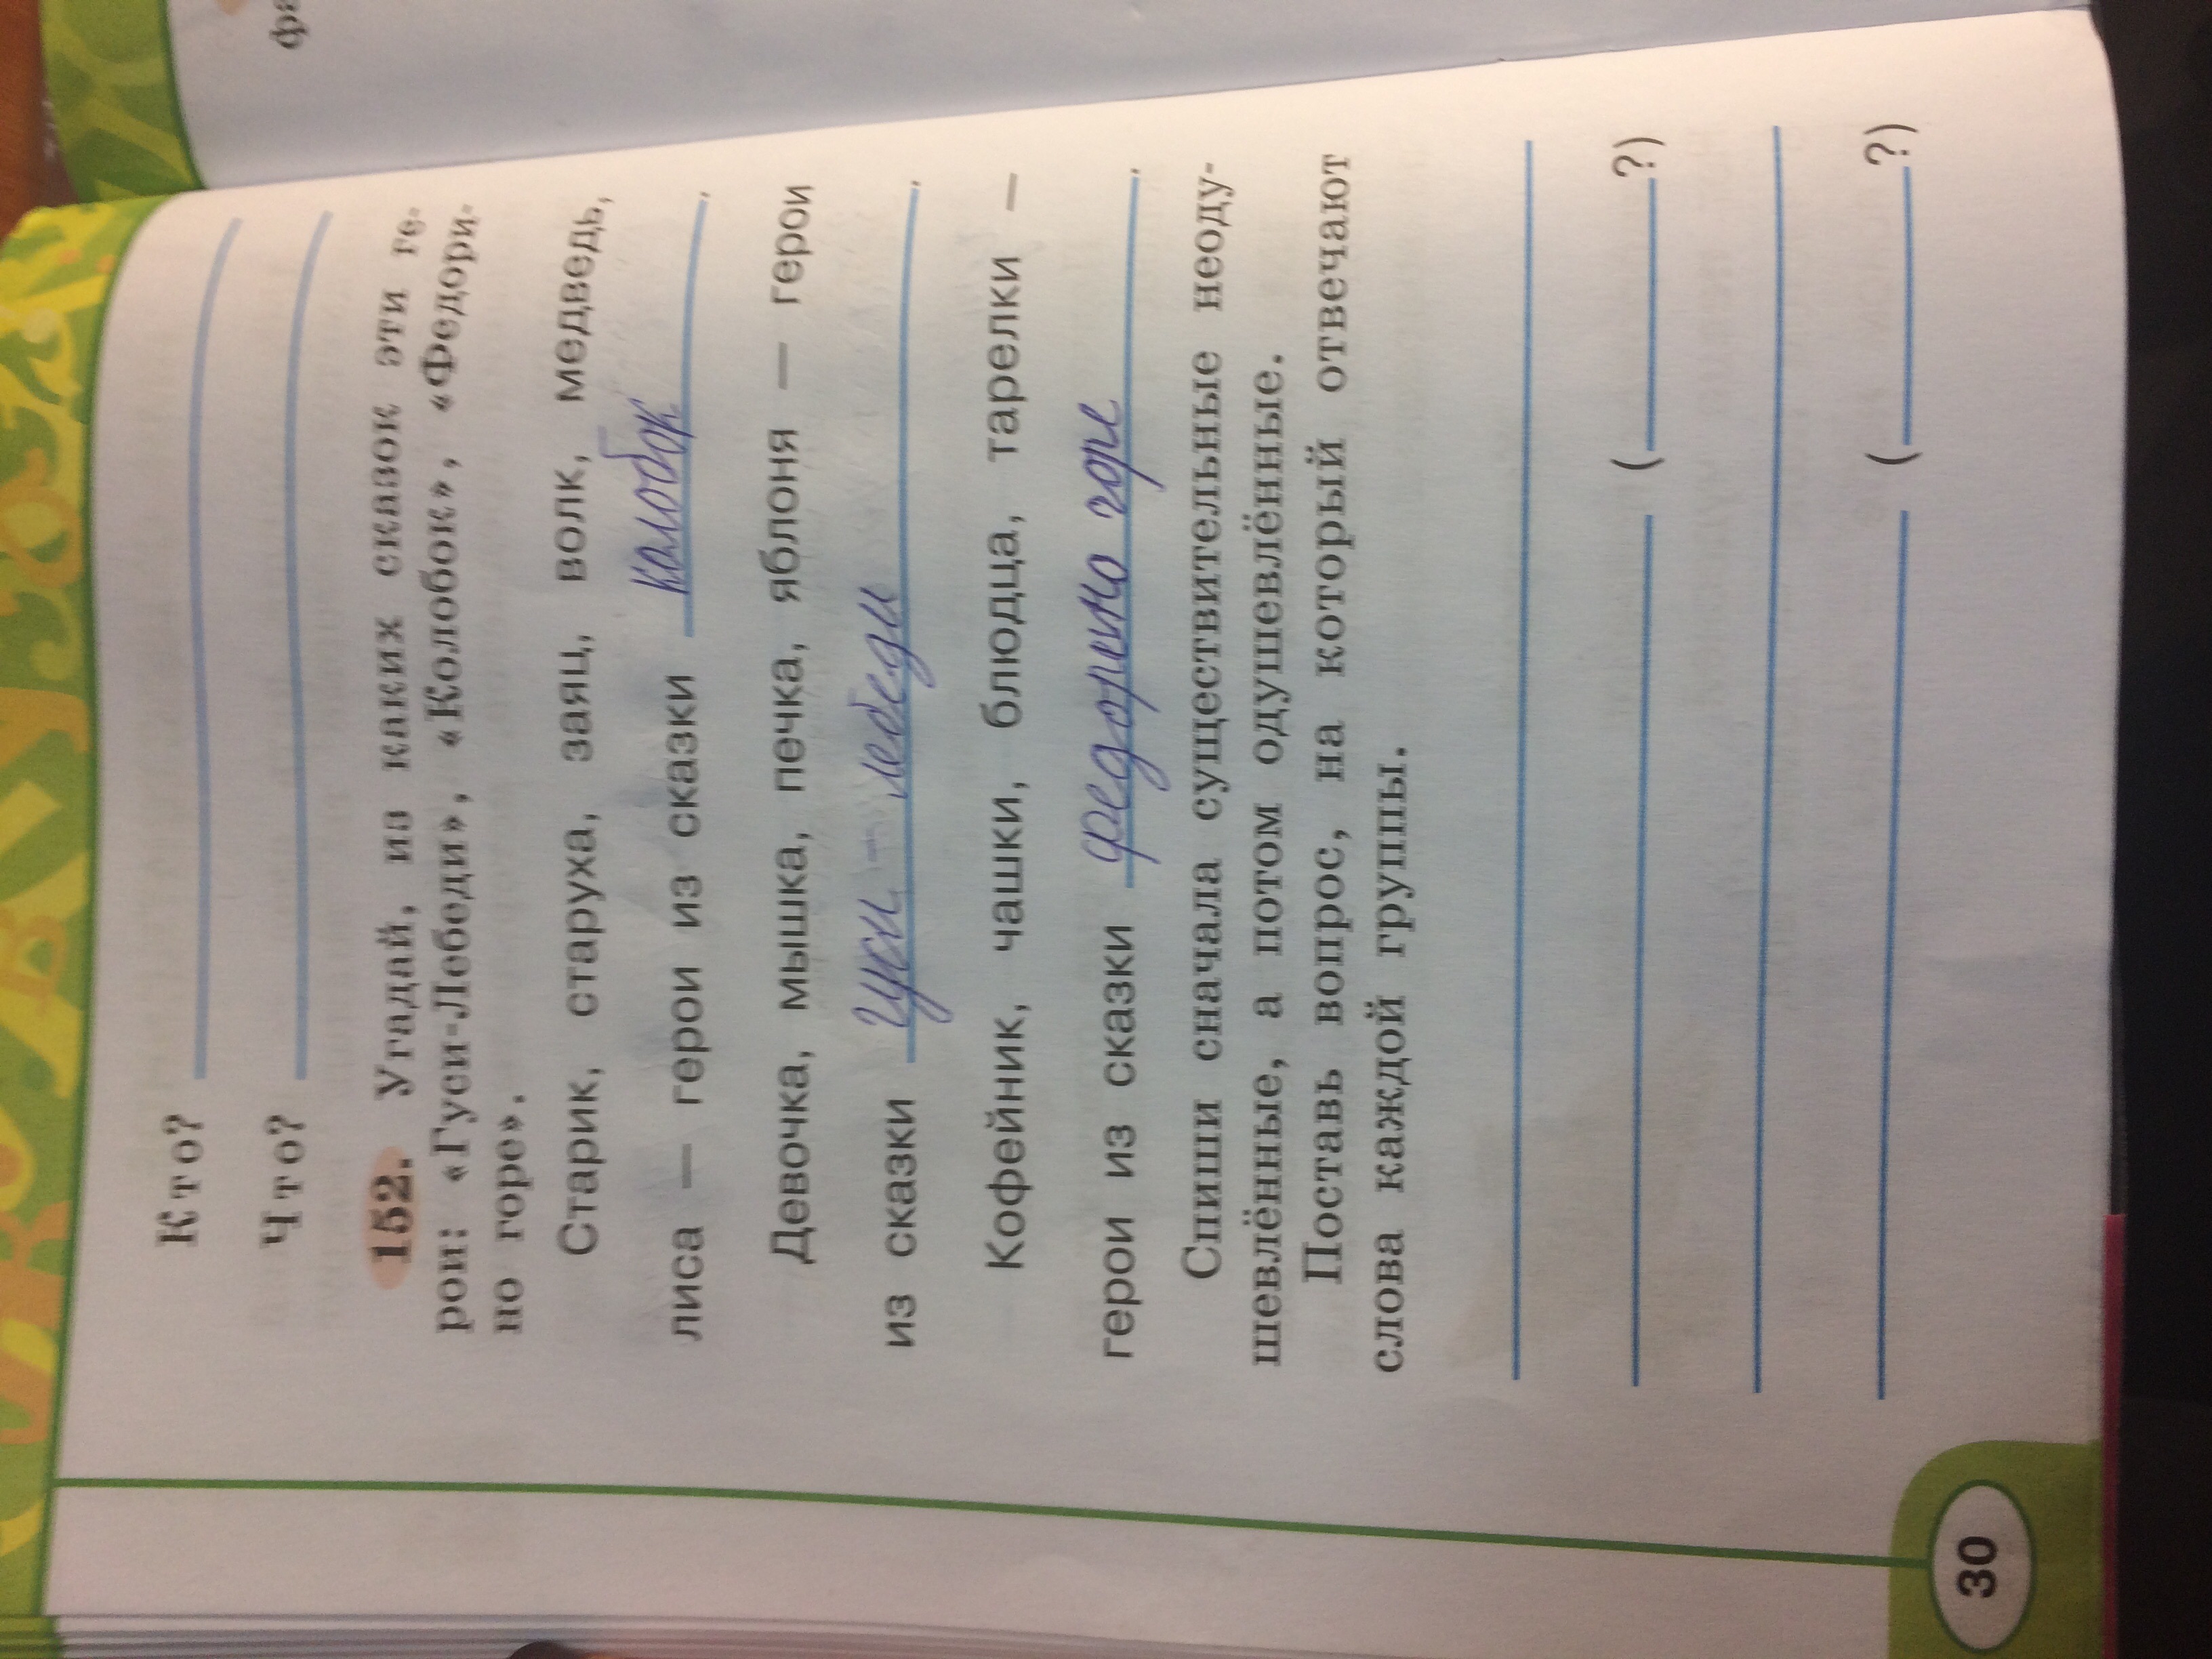 фа
Кто?
Что?
152. Угадай, из каких сказок эти ге-
рои: «Гуси-Лебеди», «Колобок», «Федори-
но горе».
Старик, старуха, заяц, волк, медведь,
лиса — герои из сказки калобок.
Девочка, мышка, печка, яблоня — герои
из сказки гуси-лебеди.
Кофейник, чашки, блюдца, тарелки —
герои из сказки федорено горе.
Спиши сначала существительные неоду-
шевлённые, а потом одушевлённые.
Поставь вопрос, на который отвечают
слова каждой группы.
( ?)
( ?)
30